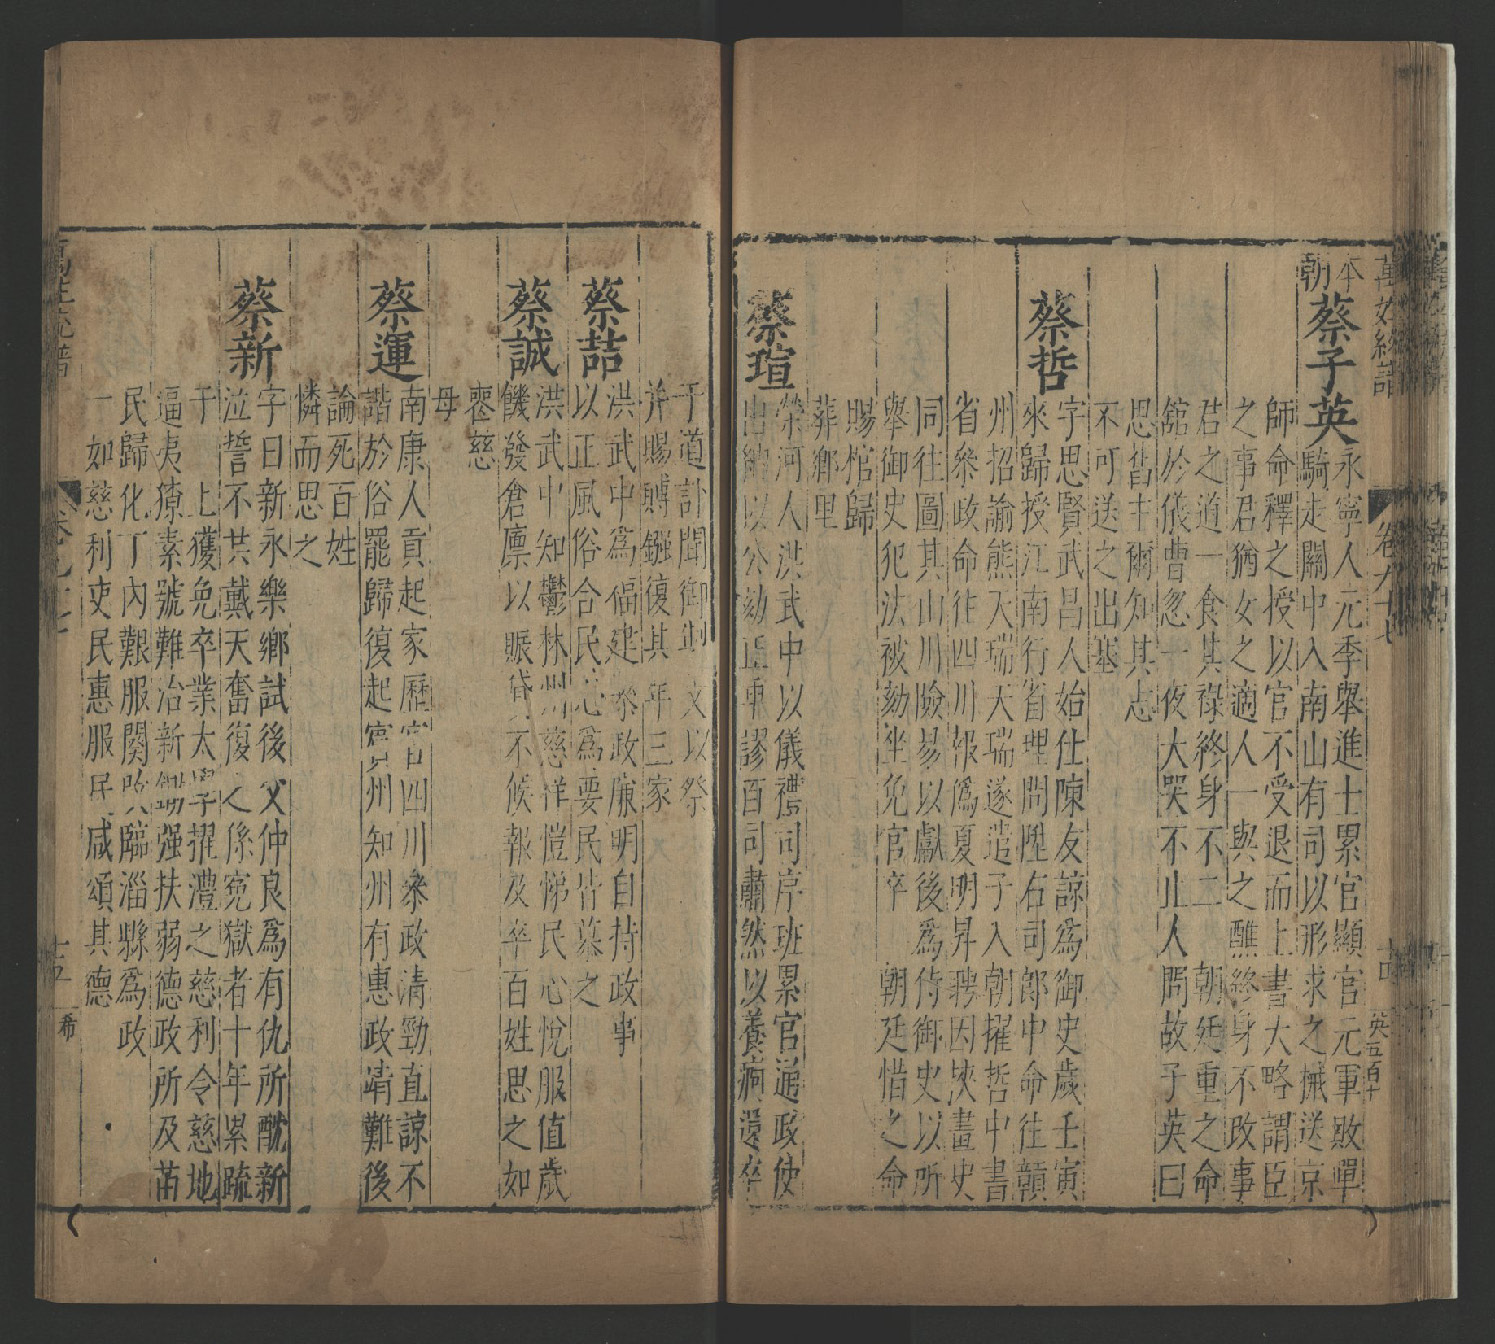 萬姓統譜 卷九十七 十四 英五百十
本朝
蔡子英 永寧人元季舉進士累官顯官元軍敗單
騎走關中入南山有司以形求之械送京
師命釋之授以官不受退而上書大略謂臣
之事君猶女之適人一與之醮終身不改事
君之道一食其祿終身不二 朝廷重之命
舘於儀曹忽一夜大哭不止人問故子英曰
思舊主爾知其志
不可送之出塞
蔡哲 字思賢武昌人始仕陳友諒為御史歲壬寅
來歸授江南行省理問陞右司郎中命往贛
州招諭熊天瑞天瑞遂遣子入朝擢哲中書
省叅政命往四川報為夏明昇聘因挾畫史
同往圖其山川險易以獻後為侍御史以所
舉御史犯法被劾坐免官卒 朝廷惜之命
賜棺歸
葬鄉里
蔡瑄 榮河人洪武中以儀禮司序班累官通政使
出納以公劾正乖謬百司肅然以養病還卒
于道訃聞御制文以祭
并賜賻鏹復其年三家
蔡喆 洪武中為福建叅政廉明自持政事
以正風俗合民心為要民皆慕之
蔡誠 洪武中知鬱林州慈祥愷悌民心悅服值歲
饑發倉廩以賑貸不候報及卒百姓思之如
喪慈
母
蔡運 南康人貢起家歷官四川叅政清勁直諒不
諧於俗罷歸復起賓州知州有惠政靖難後
論死百姓
憐而思之
蔡新 字日新永樂鄉試後父仲良為有仇所酖新
泣誓不共戴天奮復之係寃獄者十年累疏
于 上獲免卒業太學擢澧之慈利令慈地
逼夷獠素號難治新鋤強扶弱德政所及苗
民歸化丁內艱服闋改臨淄縣為政
一如慈利吏民惠服民咸頌其德
萬姓統譜 卷九十七 十五 希